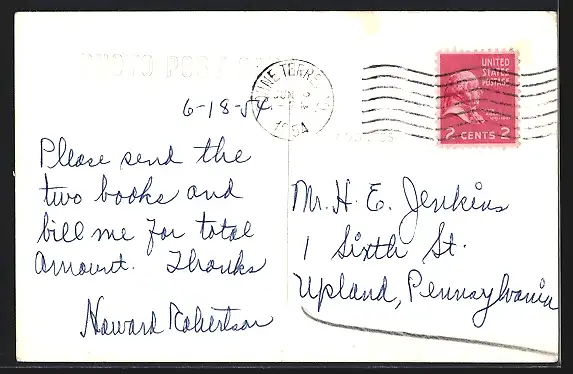 6-18-54.
Please send the
two books and
bill me for total
amount. Thanks
Howard Robertson
UNITED
STATES
POSTAGE
2 CENTS 2
1954
Mr. H. E. Jenkins
1 Sixth St.
Upland, Pennsylvania